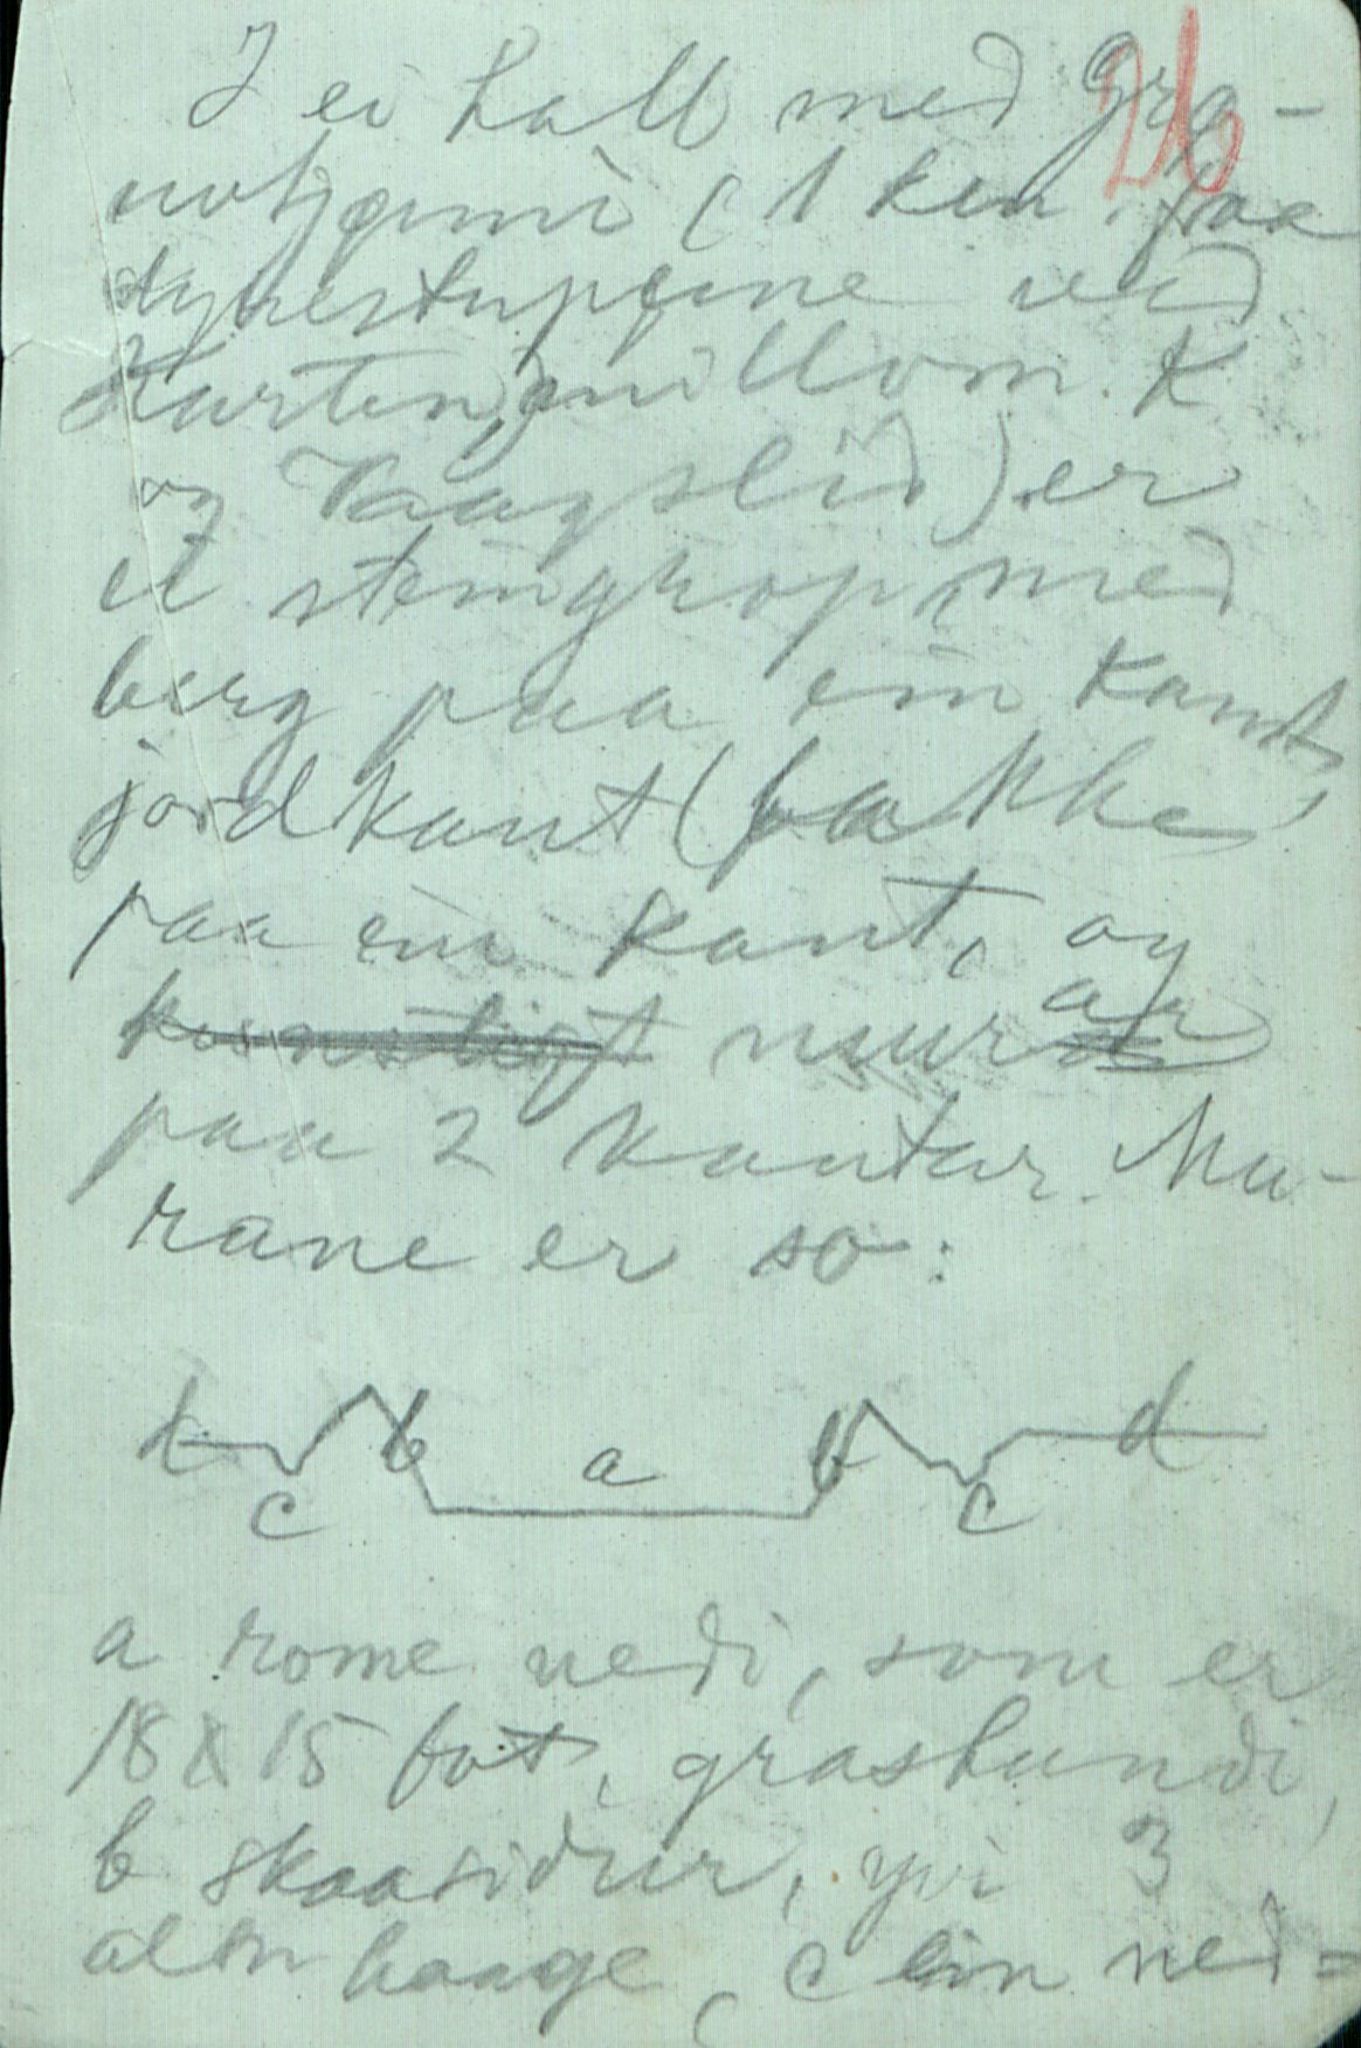 26
I ei hall med Gra-
notjønni (1 km. fraa
dyrestupjune ved
Karten, millom K
og Vaagslid) er
et steingrop, med
berg paa ein kant,
jordkant (bakke
paa ein kant, og
kunstigt murar
paa 2 kantar. Mu-
rane er so:
d b a b d
c c
a rome nedi, som er
18 X 15 fot, grasbundi,
b skaasidur, yvi 3
aln haage, c ein ned=